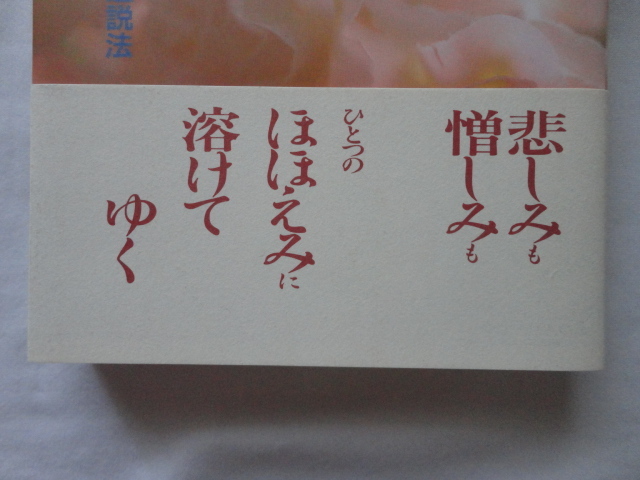 悲しみも
憎しみも
ひとつの
ほほえみに
溶けて
ゆく
説法